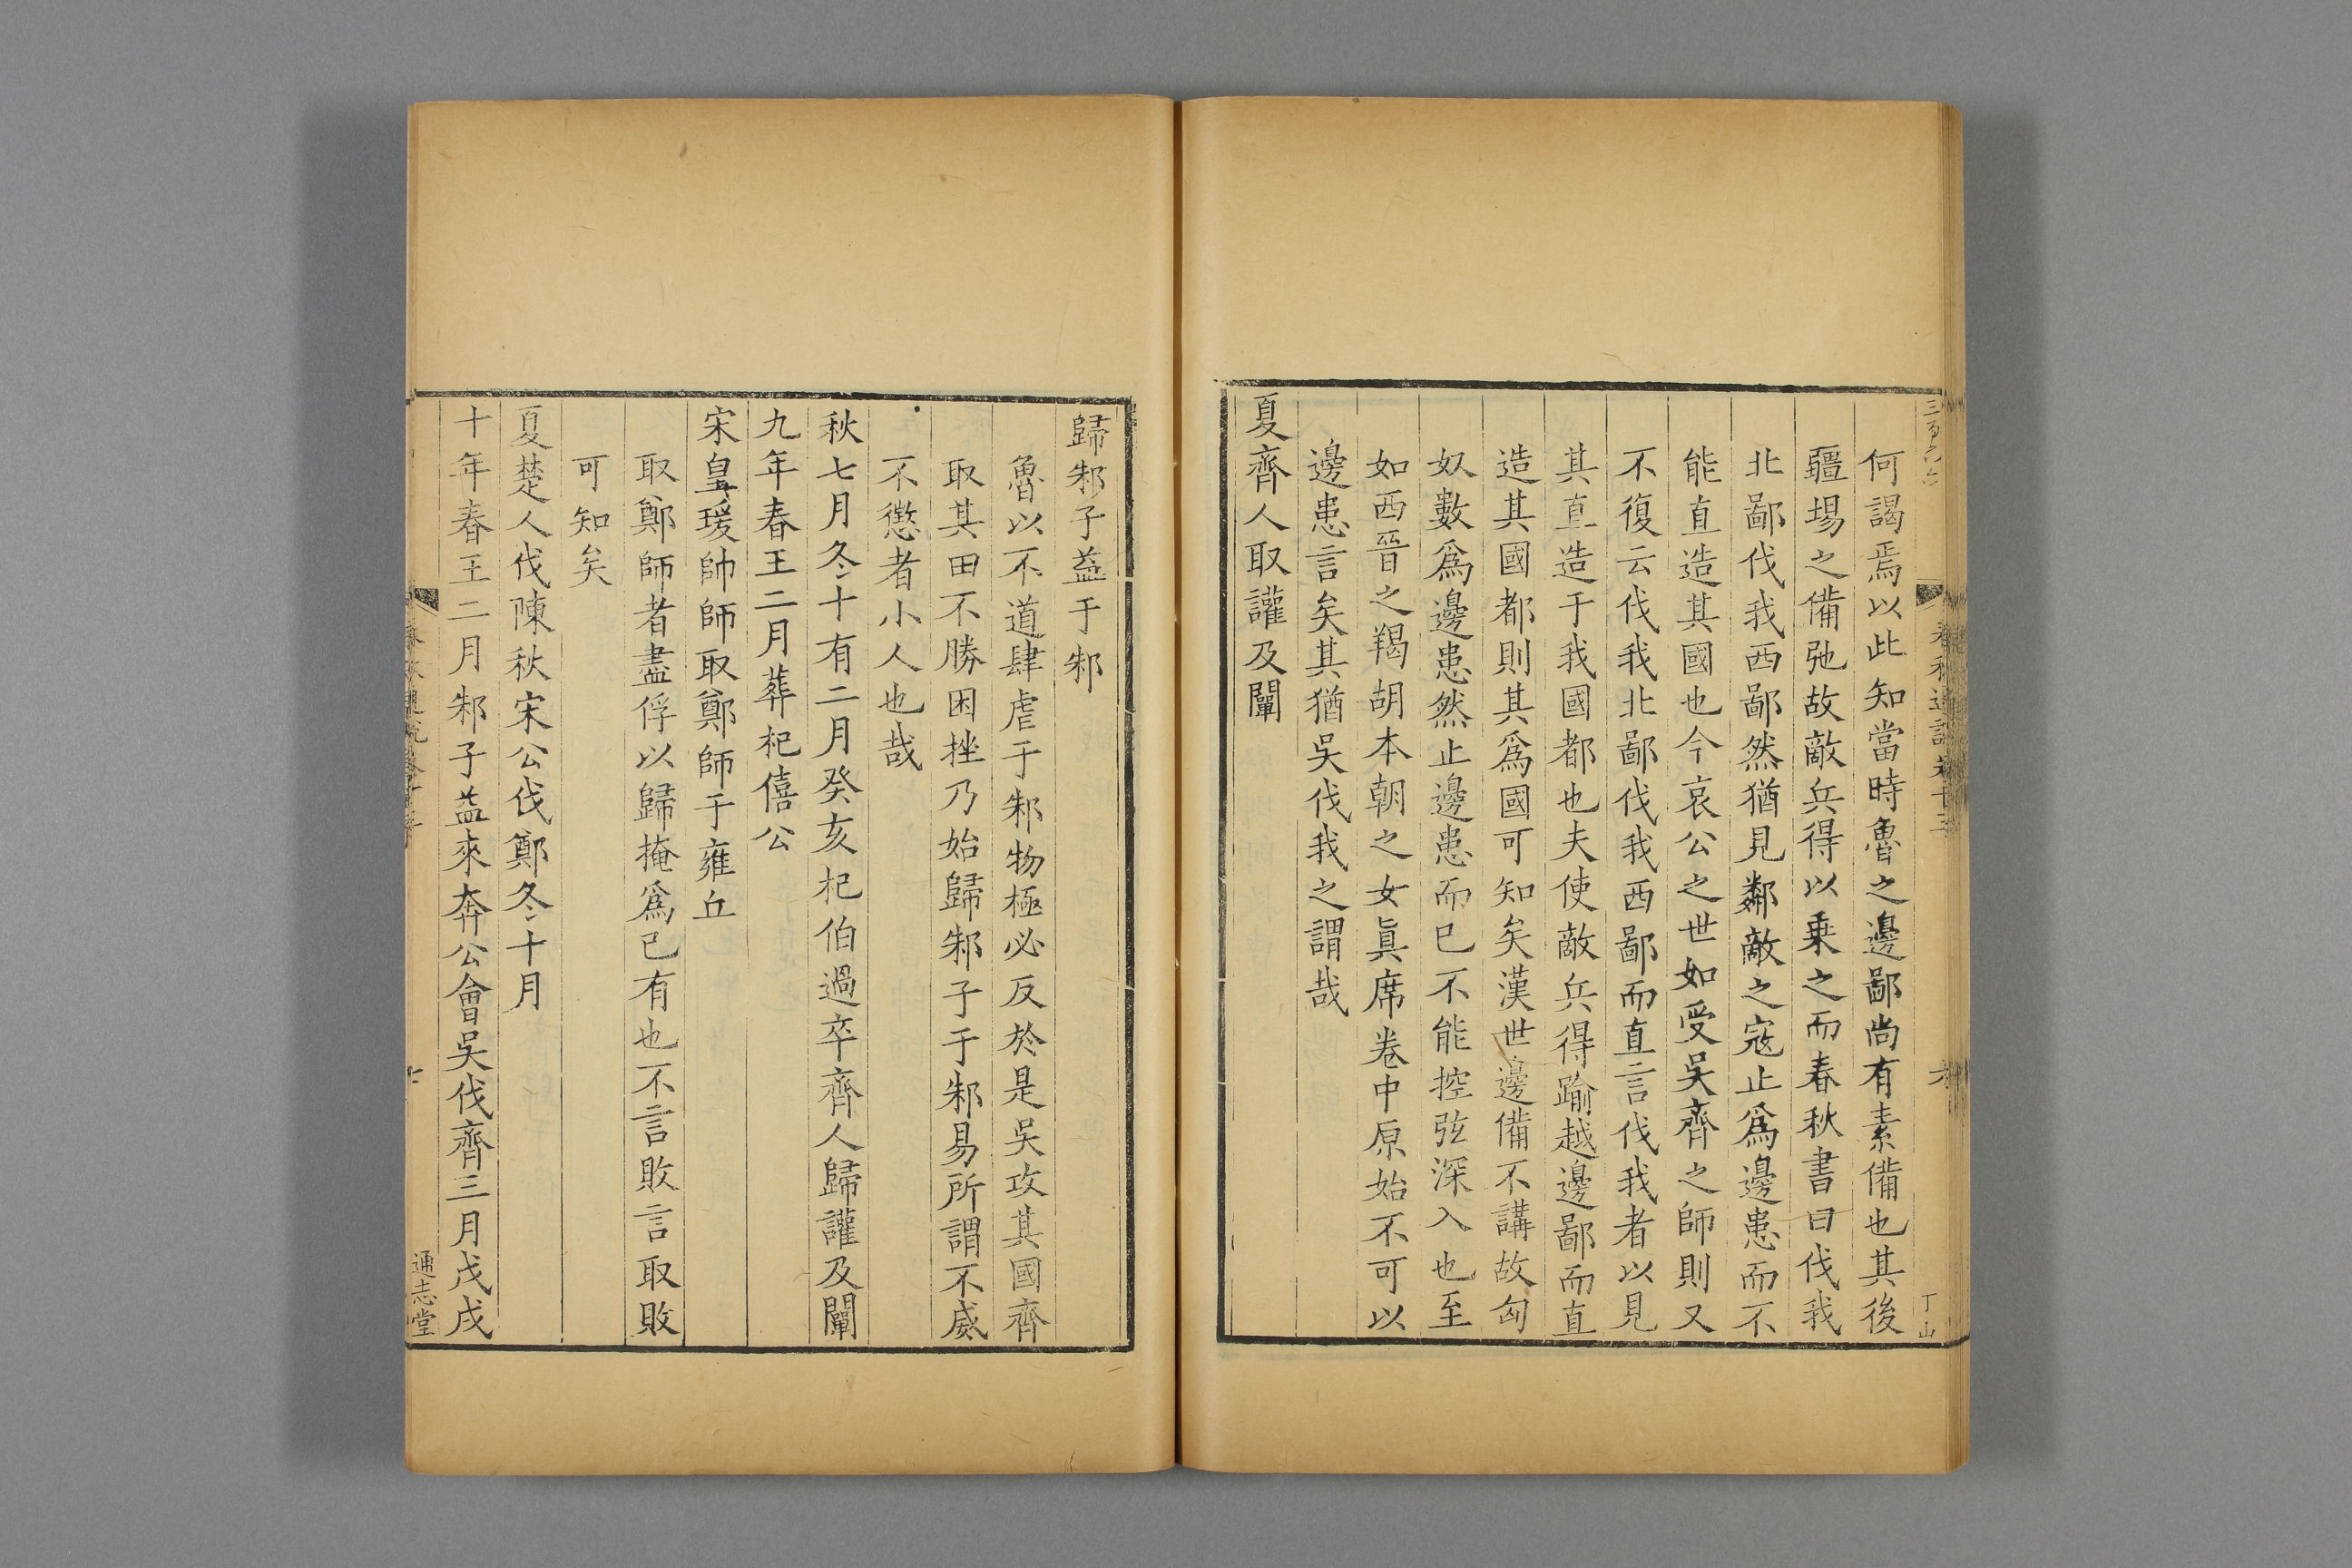 何謁焉以此知當時魯之邊鄙尚有素備也其後
疆埸之備弛故敵兵得以乗之而春秋書曰伐我
北鄙伐我西鄙然猶見鄰敵之寇止爲邊患而不
能直造其國也今哀公之世如受吳齊之師則又
不復云伐我北鄙伐我西鄙而直言伐我者以見
其直造于我國都也夫使敵兵得踰越邊鄙而直
造其國都則其爲國可知矣漢世邊備不講故匈
奴數爲邊患然止邊患而已不能控弦深入也至
如西晉之羯胡本朝之女眞席卷中原始不可以
邊患言矣其猶吳伐我之謂哉
夏齊人取讙及闡
歸邾子益于邾
魯以不道肆虐于邾物極必反於是吳攻其國齊
取其田不勝困挫乃始歸邾子于邾易所謂不威
不懲者小人也哉
秋七月冬十有二月癸亥杞伯過卒齊人歸讙及闡
九年春王二月葬杞僖公
宋皇瑗帥師取鄭師于雍丘
取鄭師者盡俘以歸掩爲已有也不言敗言取敗
可知矣
夏楚人伐陳秋宋公伐鄭冬十月
十年春王二月邾子益來奔公會吳伐齊三月戊戌
通志堂